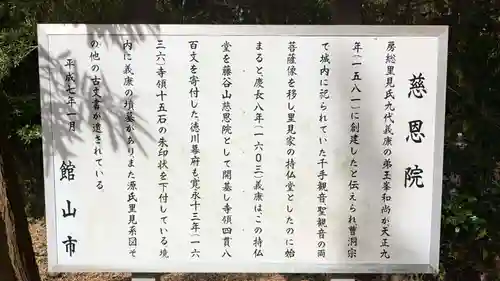 慈恩院
房総里見氏九代義康の弟玉峯和尚が天正九
年(一五八一)に創建したと伝えられ曹洞宗
で城内に祀られていた千手観音、聖観音の両
菩薩像を移し里見家の持仏堂としたのに始
まると慶長八年(一六〇三)義康はこの持仏
堂を藤谷山慈恩院として開基し寺領四貫八
百文を寄付した。徳川幕府も寛永十三年(一六
三六)寺領十五石の朱印状を下付している。境
内に義康の墳墓がありまた源氏里見系図そ
の他の古文書が遺されている。
平成七年一月
館山市